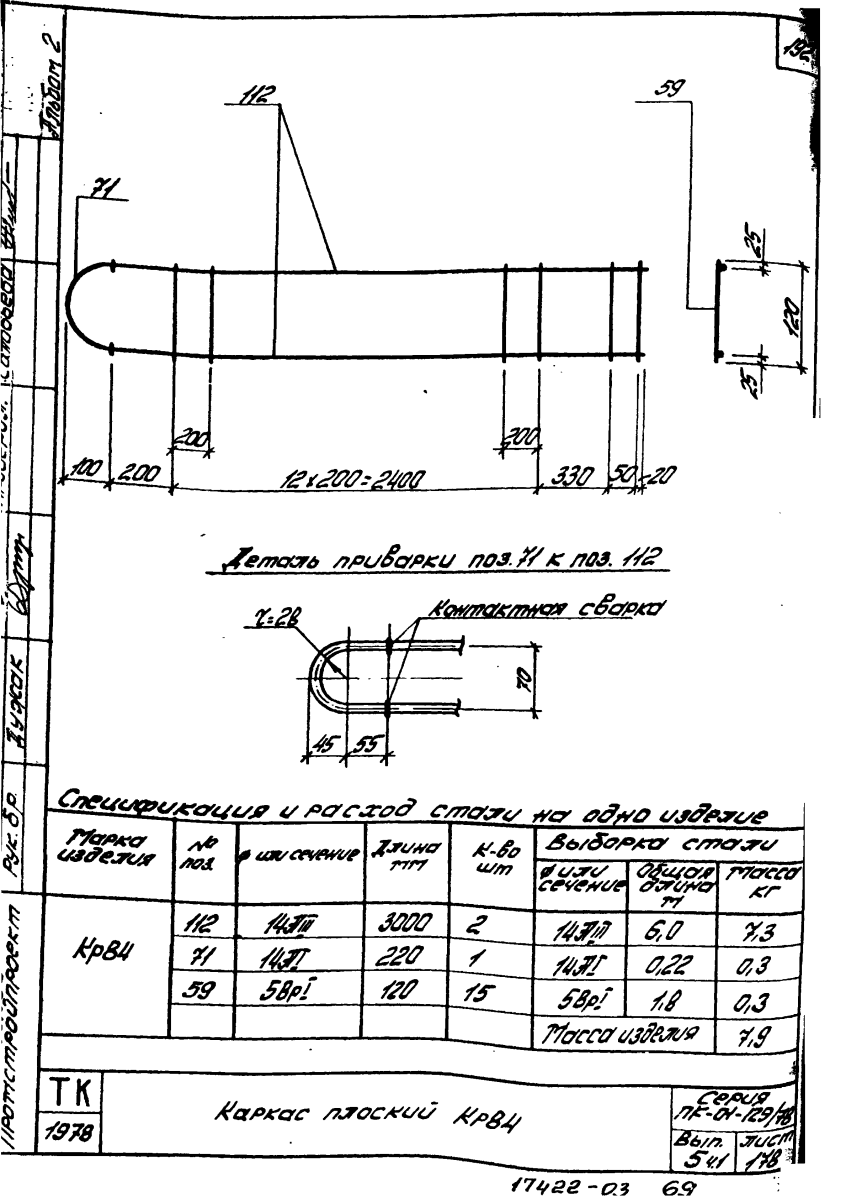 192
Альбом 2
112
59
71
25
120
25
200
200
100
200
12×200=2400
330
50
20
Деталь приварки поз. 71 к поз. 112
Контактная сварка
r=28
70
45
55
Спецификация и расход стали на одно изделие
Марка изделия
№ поз.
ø или сечение
Длина мм
К-во шт
Выборка стали
ø или сечение
Общая длина м
Масса кг
КрВ4
112 14АIII 3000 2 14АIII 6,0 7,3
71 14АI 220 1 14АI 0,22 0,3
59 5ВрI 120 15 5ВрI 1,8 0,3
Масса изделия 7,9
ТК
1978
Каркас плоский КрВ4
Серия
ПК-01-129/78
Вып.
5 ч.1
Лист
178
Рук. бр.
Дужак
17422-03 69